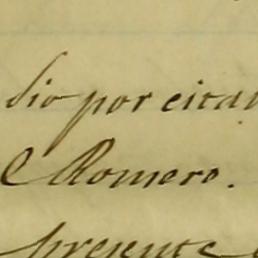 dio por citad
l Romero.
presente